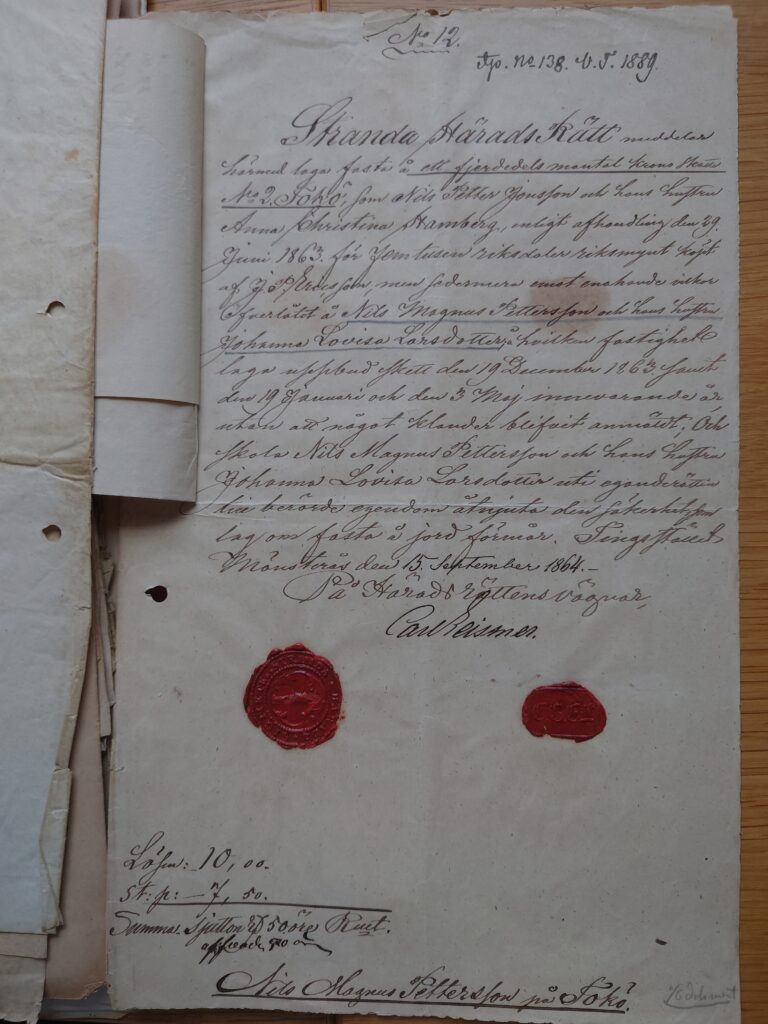 No 12.
Ap. No 138. V. T. 1889.
Stranda Härads Rätt meddelar
härmed laga fasta å ett fjerdedels mantal krono skatte
No 2 Tokö, som Nils Petter Jonsson och hans hustru
Anna Christina Hamberg, enligt afhandling den 29
Juni 1863 för femtusen riksdaler riksmynt köpt
af J. P. Ericsson, men sedermera emot enahanda vilkor
öfverlåtit å Nils Magnus Pettersson och hans hustru
Johanna Lovisa Larsdotter, å hvilken fastighet
laga uppbud skett den 19 December 1863 samt
den 19 Januari och den 3 Maj innevarande år
utan att något klander blifvit anmäldt. Och
skola Nils Magnus Pettersson och hans hustru
Johanna Lovisa Larsdotter uti eganderätten
till berörde egendom åtnjuta den säkerhet, som
lag om fasta å jord förmår. Tingsstället
Mönsterås den 15 September 1864.-
På Härads Rättens vägnar,
Carl
Lösen: 10, 00.
St: p: - 7, 50.
Summa. Sjutton Rd 50 öre Rmt.
Nils Magnus Pettersson på Tokö.